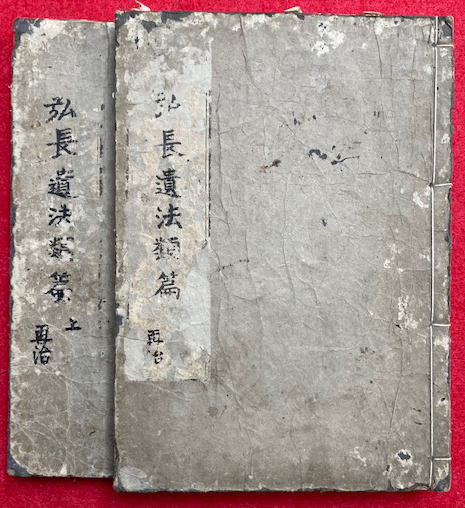 弘長遺法類篇
再治
弘長遺法類篇
上
再治